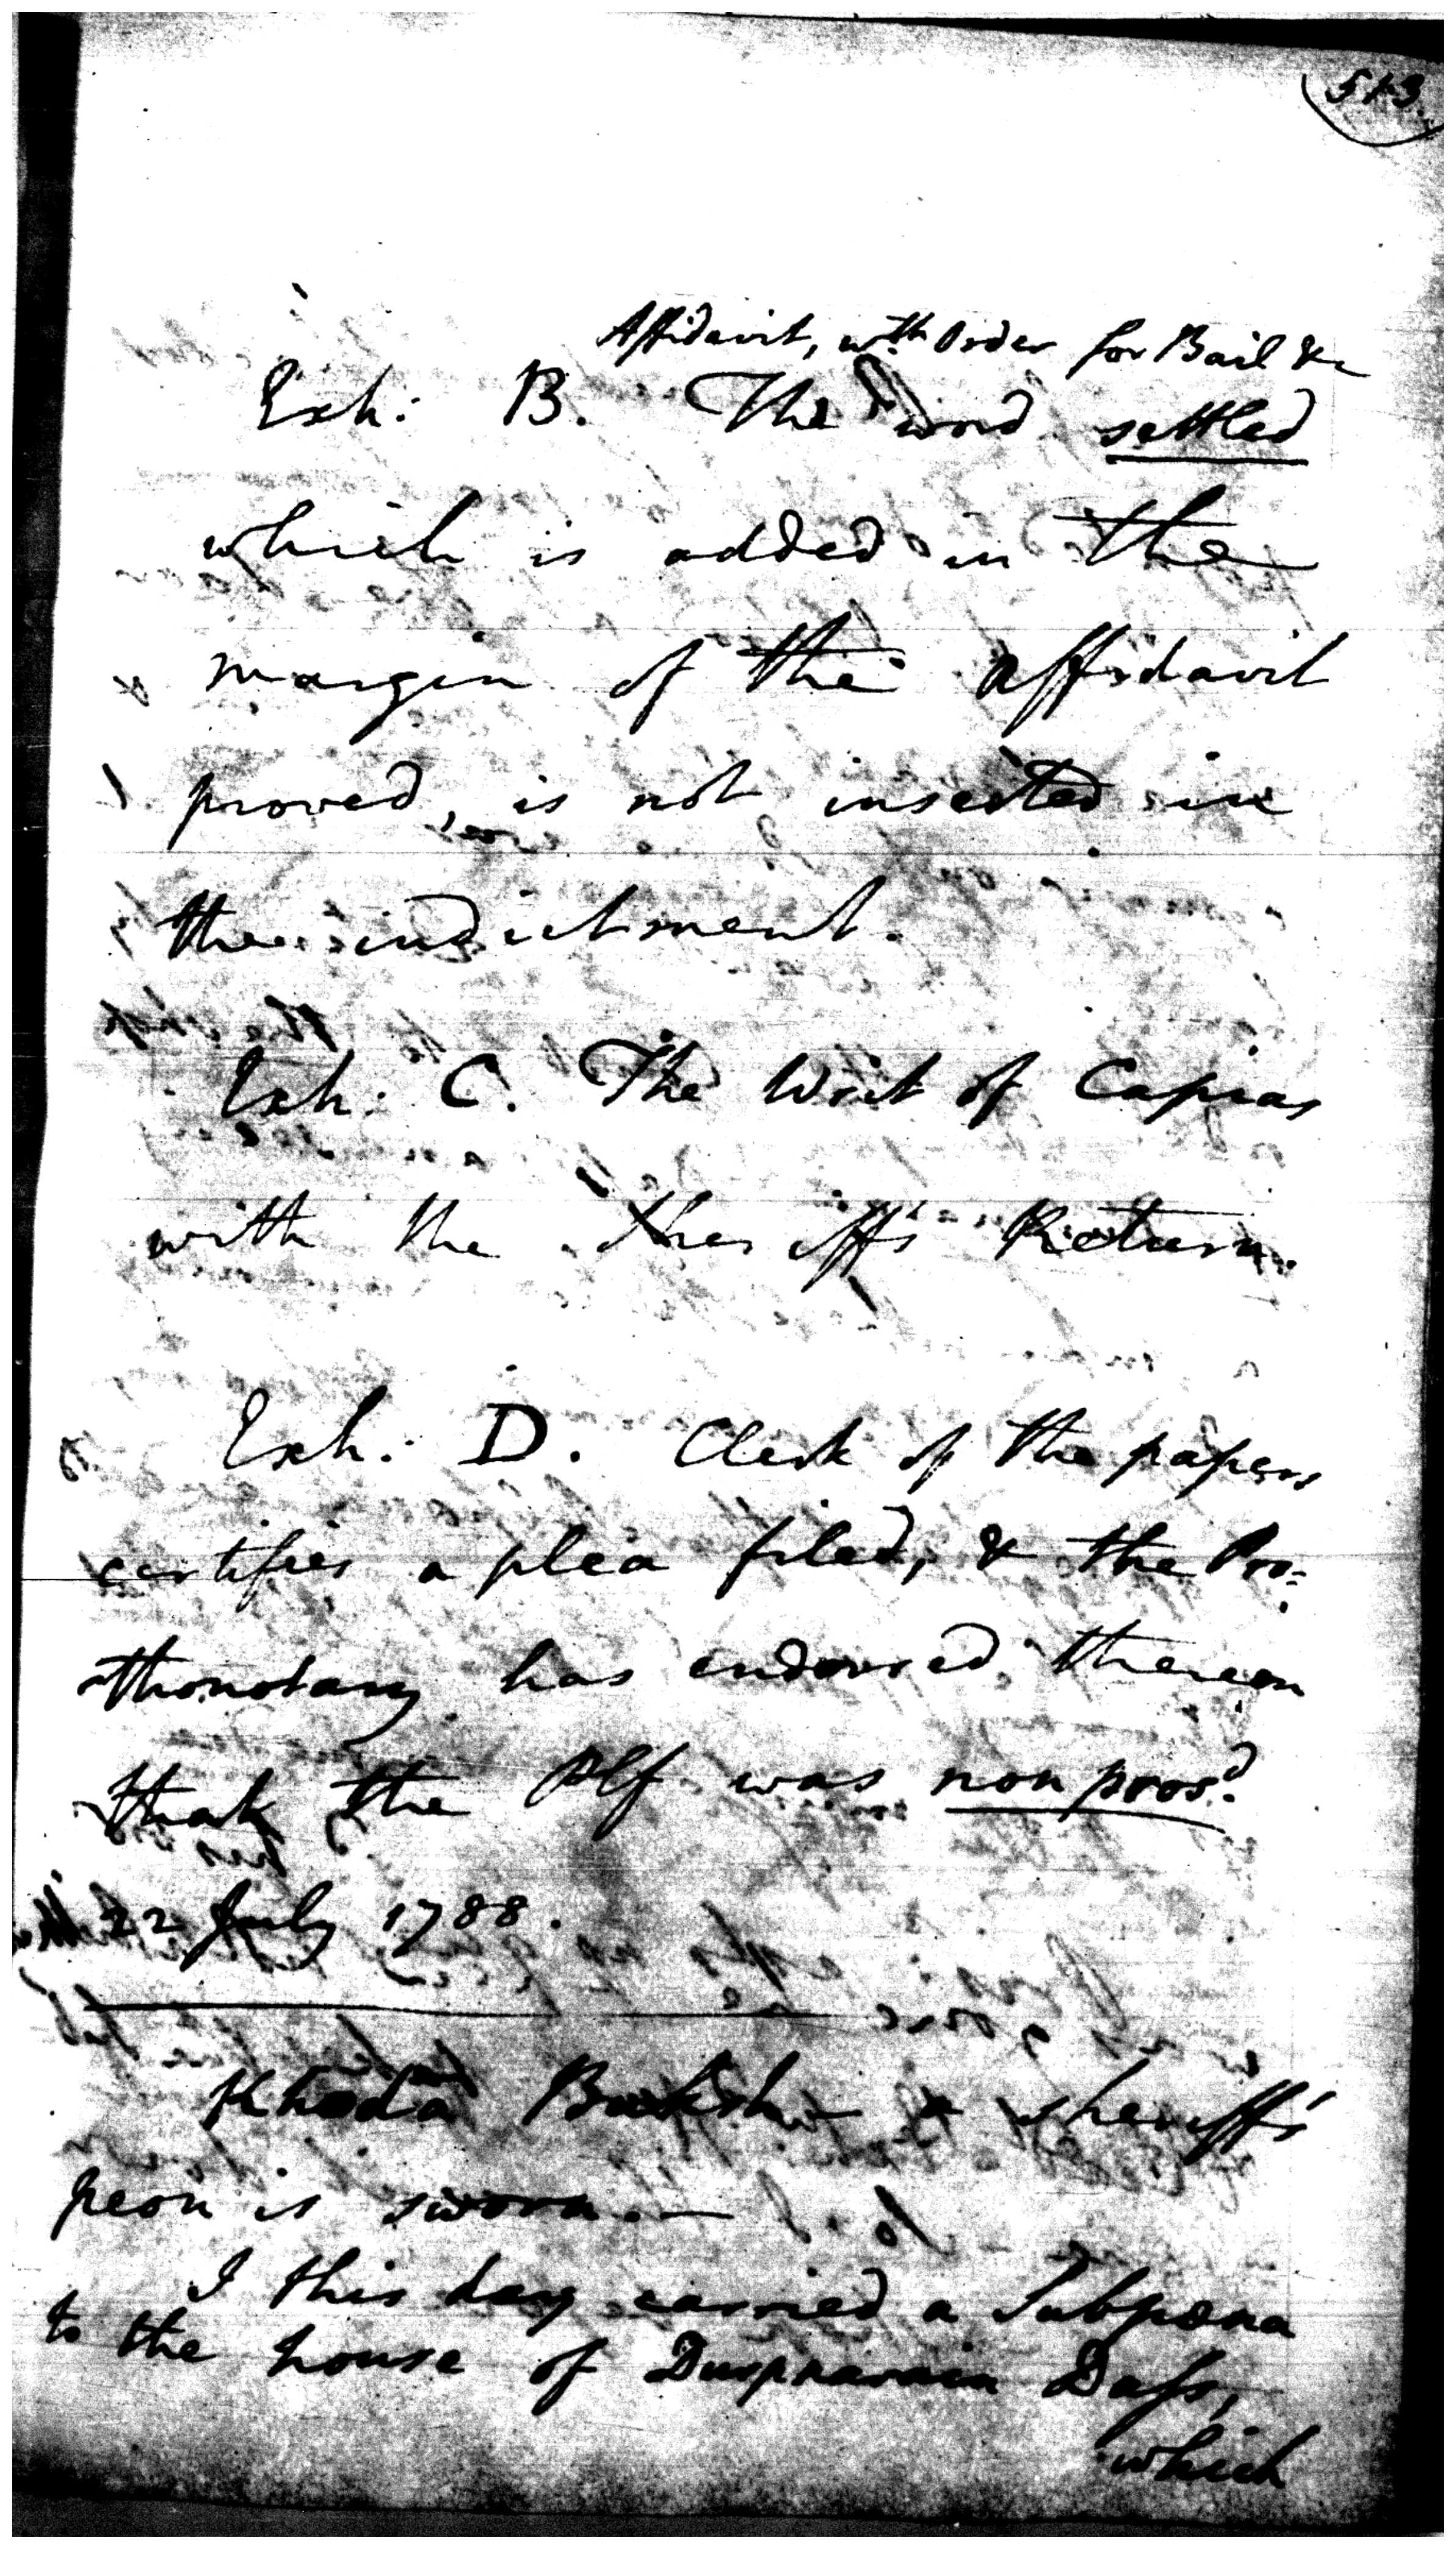 513
Affidavit, wth Order for Bail &c
Exh: B. The word settled
which is added in the
margin of the affidavit
proved, is not inserted in
the indictment.
Exh: C. The Writ of Capias
with the Sheriff's Return.
Exh: D. Clerk of the papers
certifies a plea filed, & the Pro:
thonotary has endorsed thereon
that the Plf was non pros'd.
22 July 1788.
Khoda Buksh - a sheriff's
peon is sworn. -
I this day carried a Subpœna
to the house of Durpnarain Dass,
which